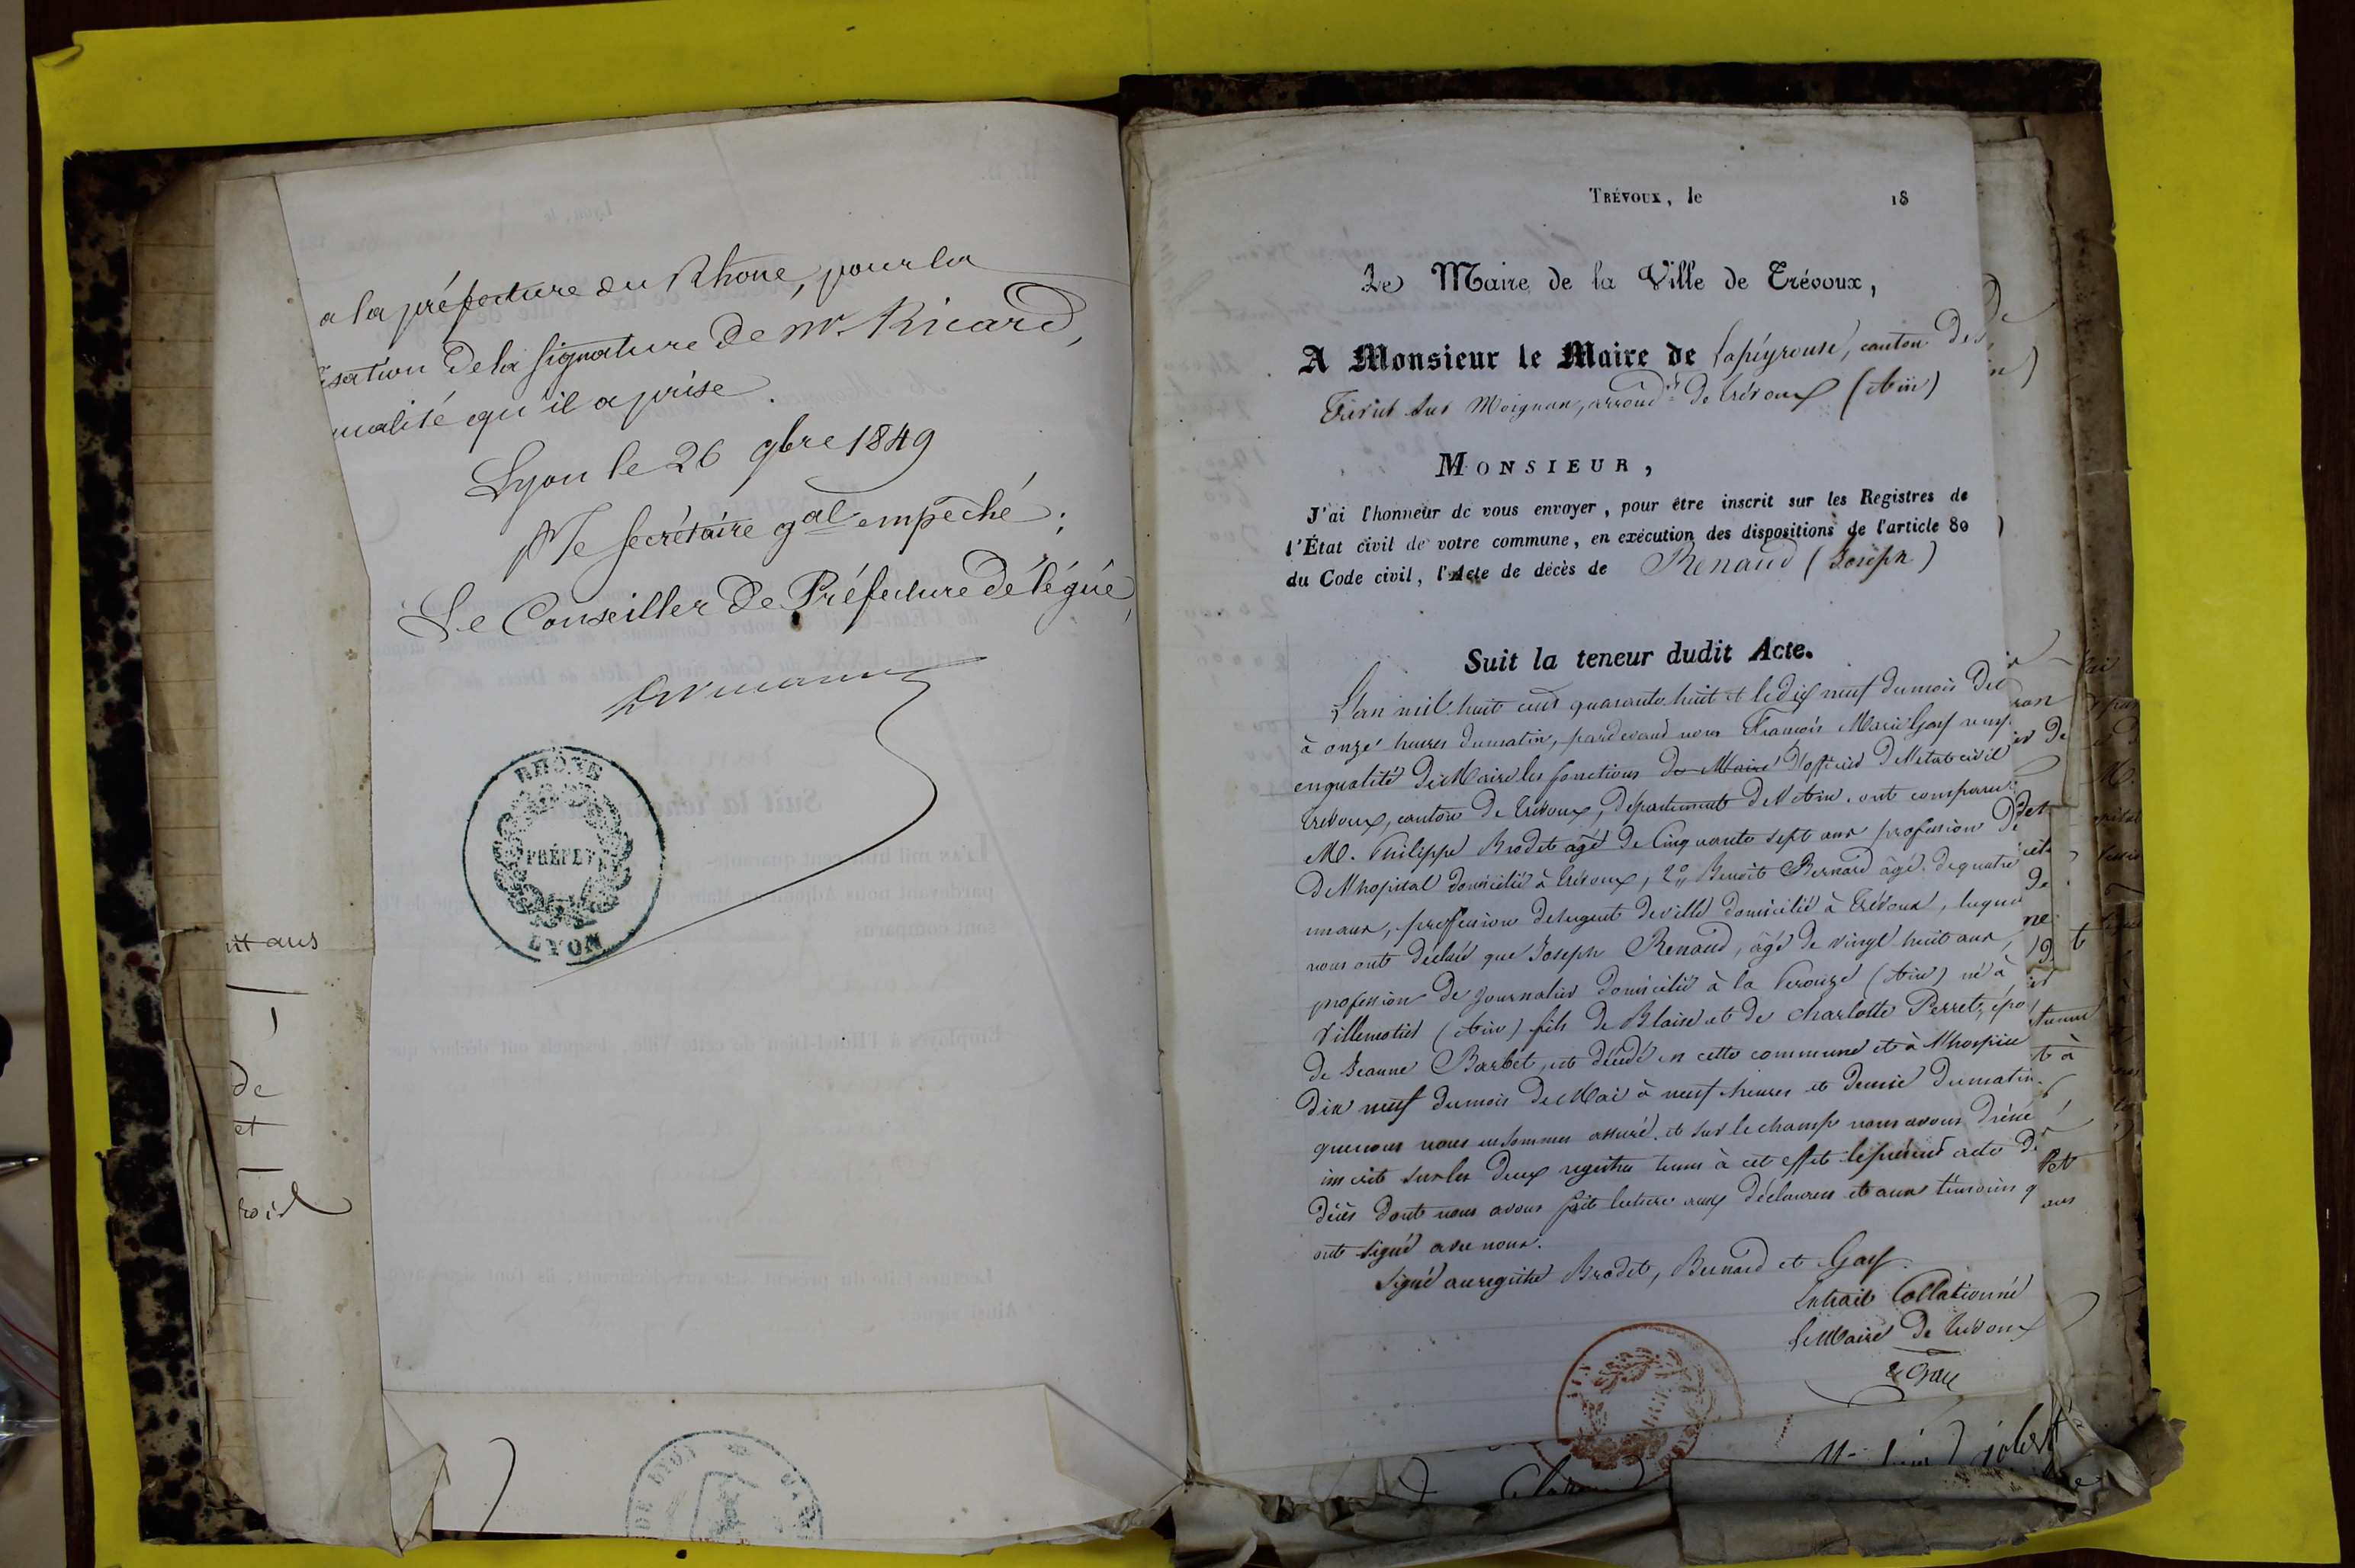 a la préfecture du Rhone, pour la
isation de la signature de Mr. Ricard,
ualité qu'il a prise.
Lyon le 26 9bre 1849
Le Secrétaire gal empeché;
Le Conseiller de Préfecture délégué,
RHÔNE
PRÉFET
LYON
ans
de
et
DE LYON
TRÉVOUX, le 18
Le Maire de la Ville de Trévoux,
A Monsieur le Maire de Lapéyrouse, canton de
sur Moignan, arrond.t de Trévoux (Ain)
MONSIEUR,
J'ai l'honneur de vous envoyer, pour être inscrit sur les Registres de
l'État civil de votre commune, en exécution des dispositions de l'article 80
du Code civil, l'Acte de décès de Renaud (Joseph)
Suit la teneur dudit Acte.
L'an mil huit cent quarante huit et le dix neuf du mois de
à onze heures du matin, pardevant nous François Marie Gay
en qualité de Maire les fonctions de Maire d'officier de l'état civil
Trévoux, canton de Trévoux, département de l'Ain, ont comparu
M. Philippe Brodet agé de Cinquante sept ans profession de
de l'hopital domicilié à Trévoux, 2° Benoit Bernard âgé de quatre
un ans, profession de sergent de ville domicilié à Trévoux,
nous ont déclaré que Joseph Renaud, âgé de vingt huit ans,
profession de journalier domicilié à la Perouze (Ain) né à
Villemotier (Ain) fils de Blaise et de Charlotte Perret, épo
de Jeanne Barbet, est décédé en cette commune et à l'hospice
dix neuf du mois de Mai à neuf heures et demie du matin.
que nous nous en sommes assuré. et sur le champ nous avons
inscrit sur les deux registres tenus à cet effet le présent acte de
décès dont nous avons fait lecture aux déclarans et aux témoins q
ont signé avec nous.
Signé au registre Brodet, Bernard et Gay.
Extrait Collationné
Le Maire de Trévoux